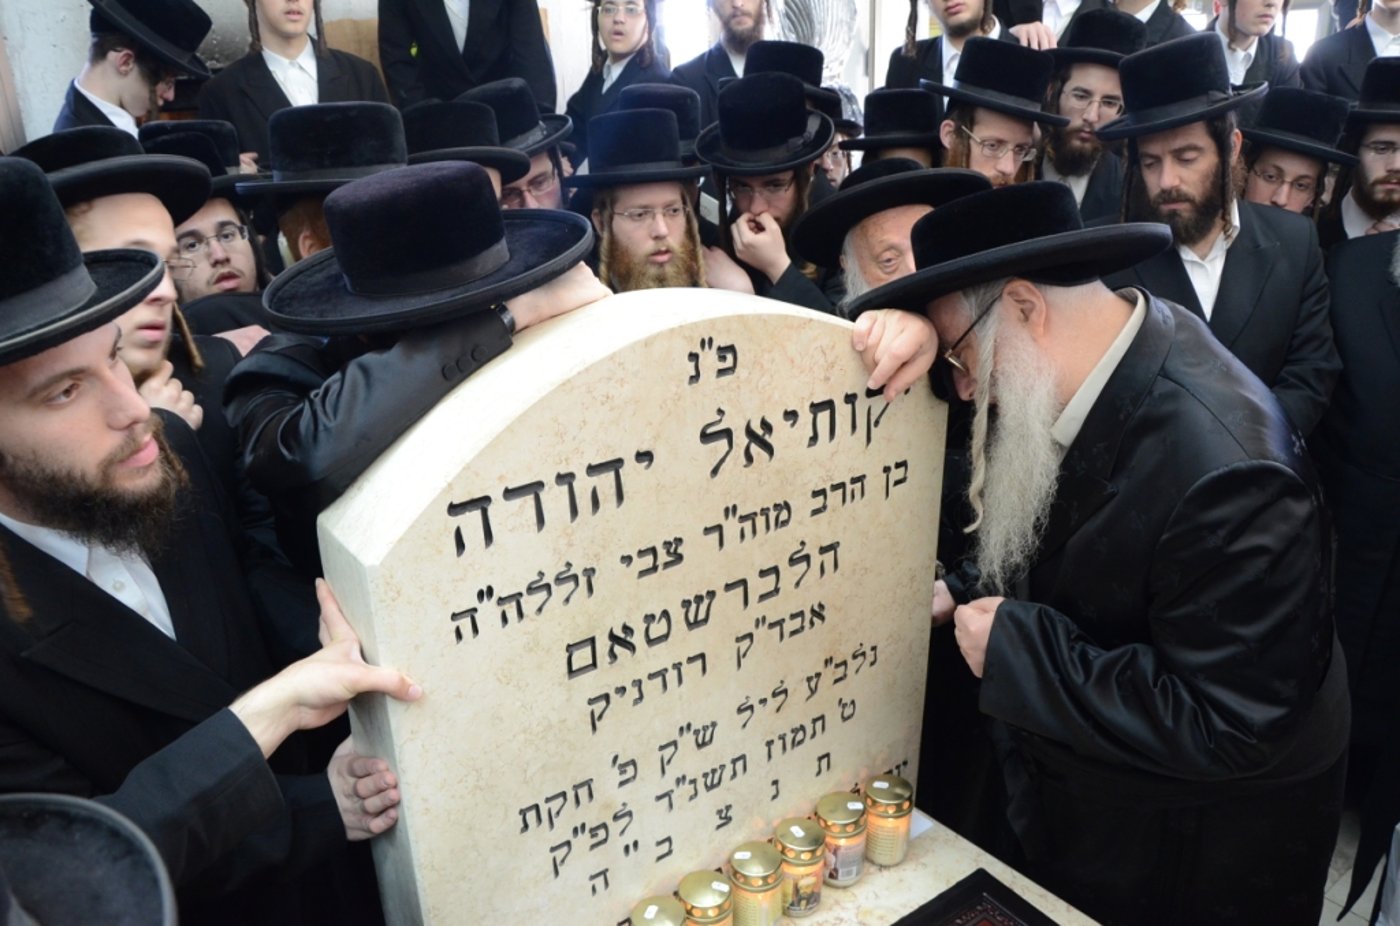 פ"נ
יקותיאל יהודה
בן הרב מוה"ר צבי זללה"ה
הלברשטאם
אבד"ק רודניק
נלב"ע ליל ש"ק פ' חקת
ט' תמוז תשנ"ד לפ"ק
ת נ צ ב "ה